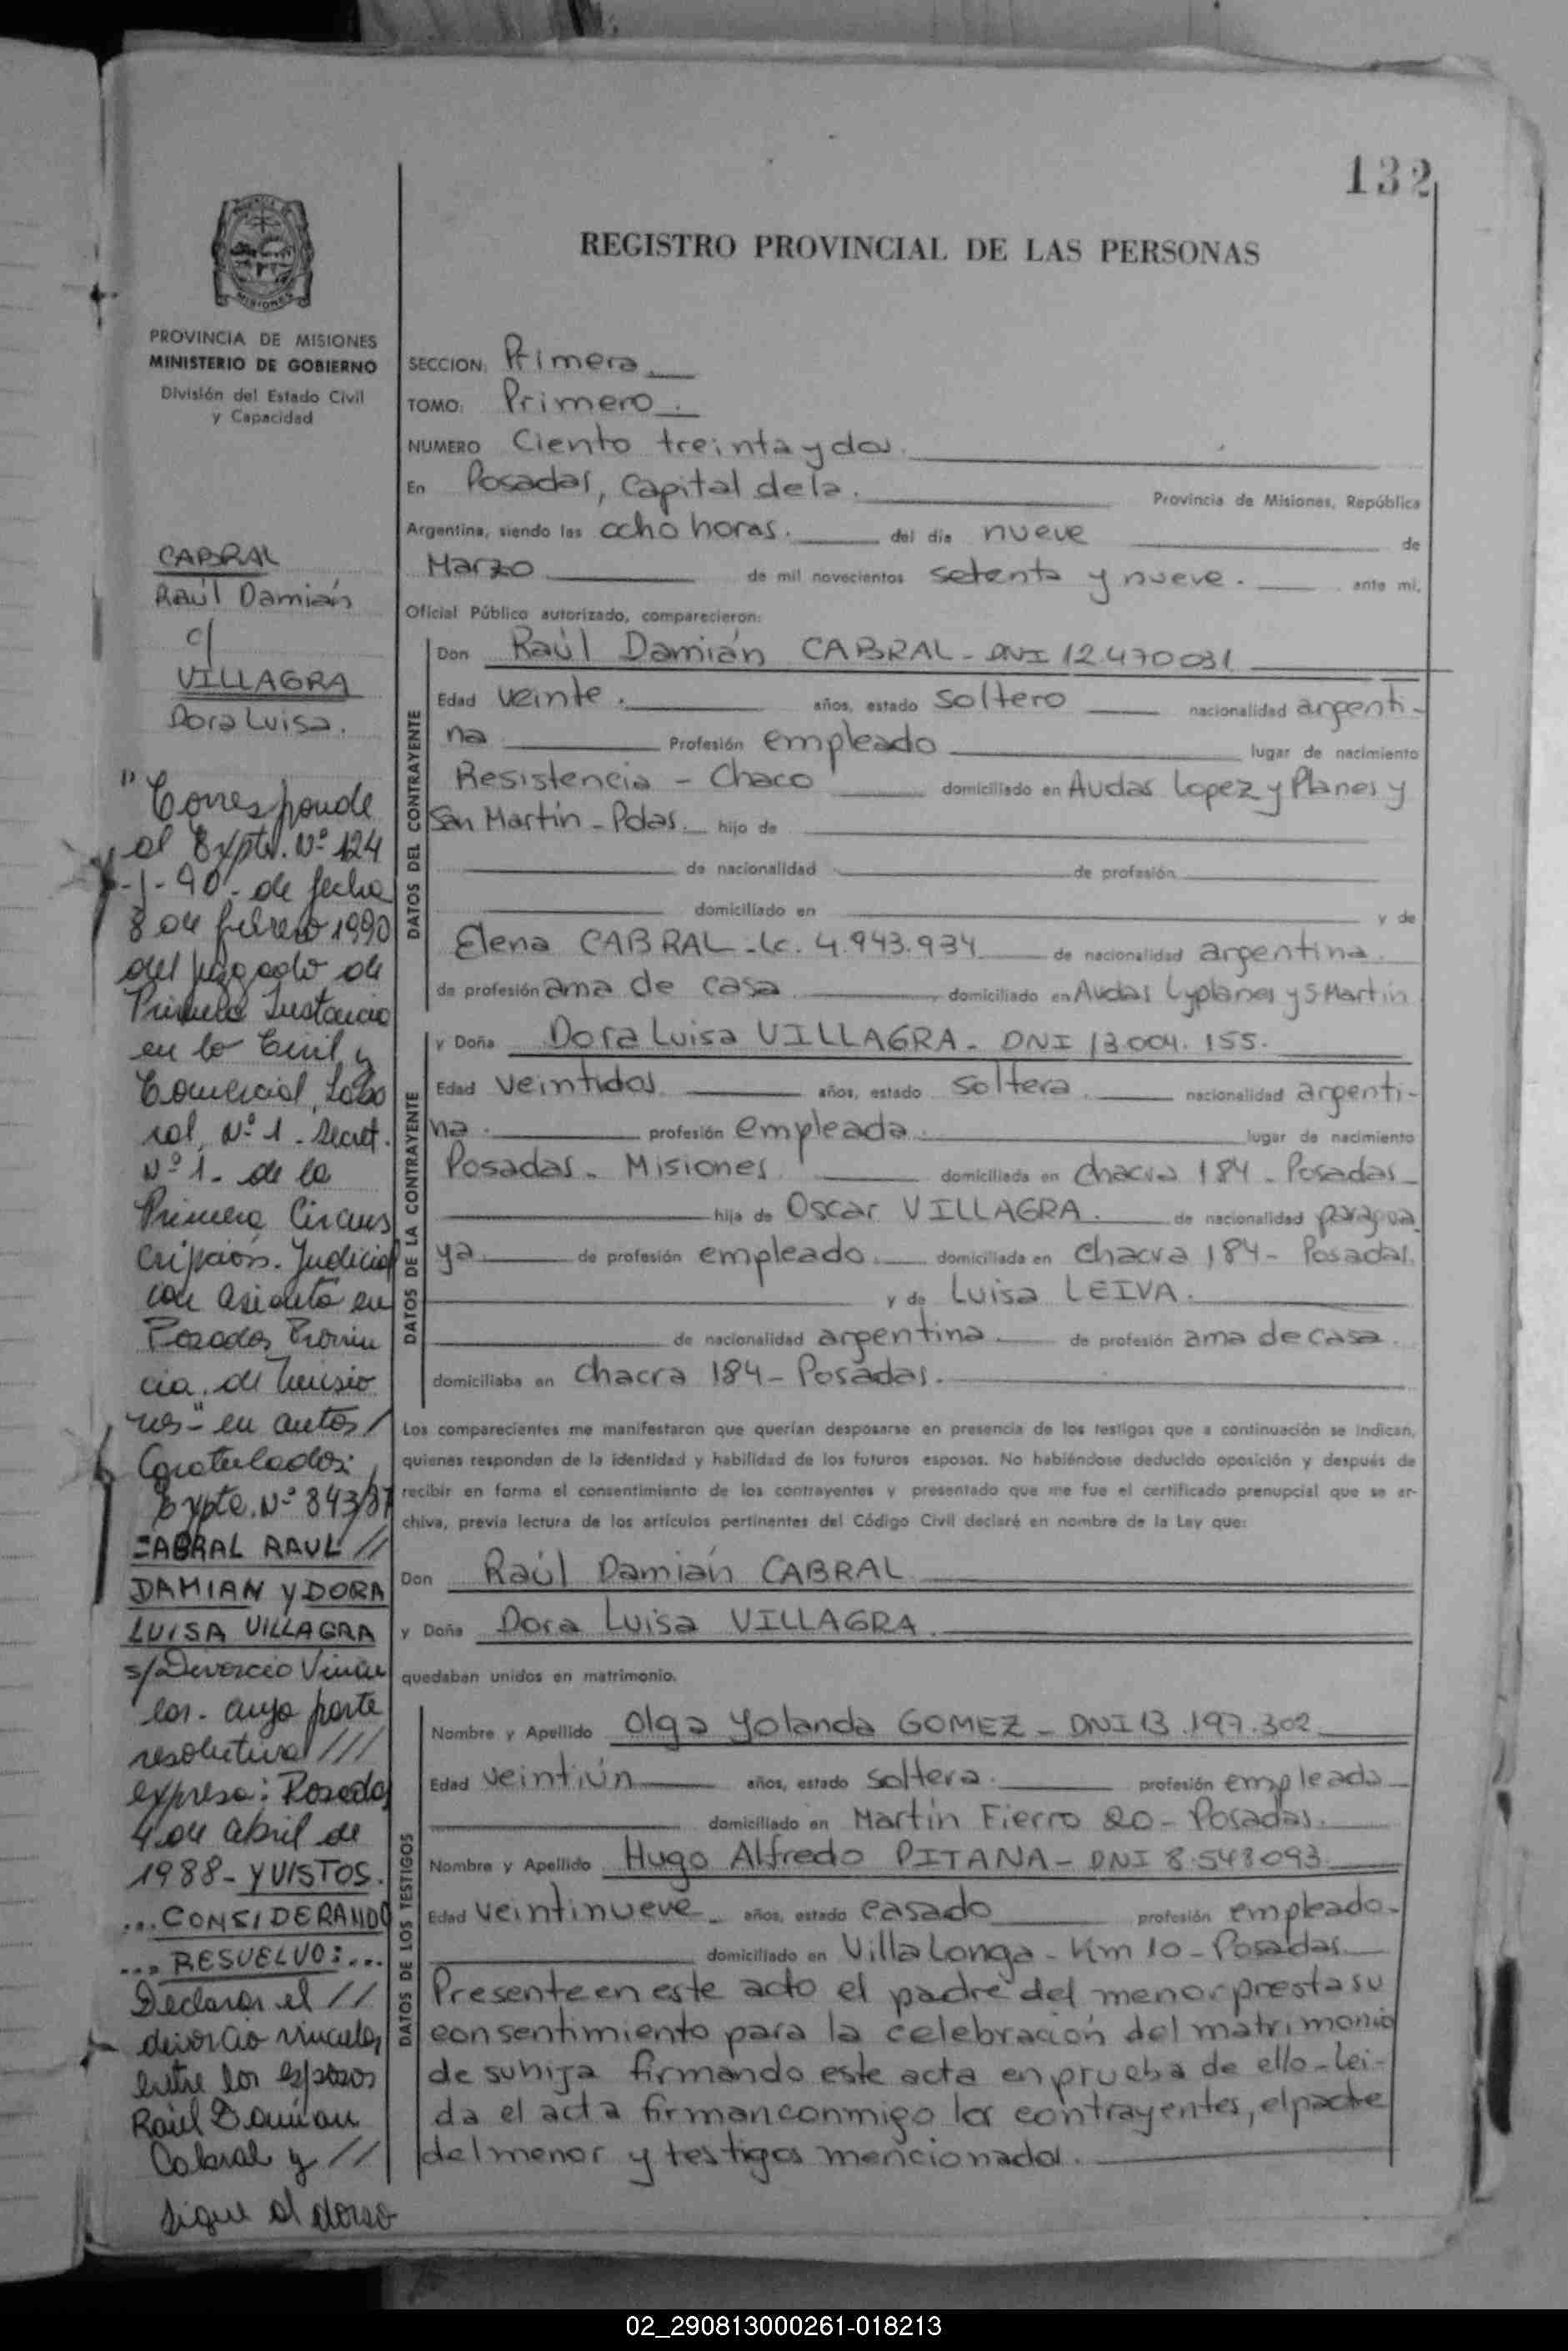 132
REGISTRO PROVINCIAL DE LAS PERSONAS
MISIONES
PROVINCIA DE MISIONES
MINISTERIO DE GOBIERNO
División del Estado Civil
y Capacidad
CABRAL
Raúl Damián
c/
VILLAGRA
Dora Luisa.
"Corresponde
al Expte. Nº 124
-J-90- de fecha
8 de febrero 1990
del juzgado de
Primera Instancia
en lo Civil y
Comercial, Labo
ral, Nº 1 - Secret.
Nº 1. de la
Primera Circuns
cripción. Judicial
con asiento en
Posadas Provin
cia. de Misio
nes-" en autos /
Caratulados:
Expte. Nº 843/87
CABRAL RAUL //
DAMIAN Y DORA
LUISA VILLAGRA
s/Divorcio Vincu
lar. cuya parte
resolutiva ///
expresa: Posadas
4 de abril de
1988- Y VISTOS.
... CONSIDERANDO
... RESUELVO:...
Declarar el //
divorcio vincular
entre los esposos
Raúl Damian
Cabral y //
sigue al dorso
SECCION: Primera
TOMO: Primero.
NUMERO Ciento treinta y dos.
En Posadas, Capital de la. Provincia de Misiones, República
Argentina, siendo las ocho horas. del día nueve de
Marzo de mil novecientos setenta y nueve. ante mí,
Oficial Público autorizado, comparecieron:
DATOS DEL CONTRAYENTE
Don Raúl Damián CABRAL - DNI 12.470031
Edad veinte. años, estado soltero nacionalidad argenti-
na Profesión empleado lugar de nacimiento
Resistencia - Chaco domiciliado en Avdas Lopez y Planes y
San Martín - Pdas. hijo de
de nacionalidad de profesión
domiciliado en y de
Elena CABRAL - Lc. 4.943.934 de nacionalidad argentina.
de profesión ama de casa domiciliado en Avdas Lyplanes y S Martín
DATOS DE LA CONTRAYENTE
y Doña Dora Luisa VILLAGRA - DNI 13.004.155.
Edad veintidos años, estado soltera nacionalidad argenti-
na. profesión empleada. lugar de nacimiento
Posadas - Misiones domiciliada en chacra 184 - Posadas
hija de Oscar VILLAGRA. de nacionalidad paragua
ya de profesión empleado. domiciliada en chacra 184 - Posadas.
y de Luisa LEIVA.
de nacionalidad argentina. de profesión ama de casa.
domiciliaba en chacra 184 - Posadas.
Los comparecientes me manifestaron que querían desposarse en presencia de los testigos que a continuación se indican,
quienes responden de la identidad y habilidad de los futuros esposos. No habiéndose deducido oposición y después de
recibir en forma el consentimiento de los contrayentes y presentado que me fue el certificado prenupcial que se ar-
chiva, previa lectura de los artículos pertinentes del Código Civil declaré en nombre de la Ley que:
Don Raúl Damián CABRAL
y Doña Dora Luisa VILLAGRA.
quedaban unidos en matrimonio.
DATOS DE LOS TESTIGOS
Nombre y Apellido Olga Yolanda GOMEZ - DNI 13.197.302
Edad veintiún años, estado soltera. profesión empleada
domiciliado en Martín Fierro 20 - Posadas.
Nombre y Apellido Hugo Alfredo PITANA - DNI 8.548093
Edad veintinueve años, estado casado profesión empleado-
domiciliado en Villa Longa - Km 10 - Posadas
Presente en este acto el padre del menor presta su
consentimiento para la celebración del matrimonio
de su hija firmando este acta en prueba de ello - Lei-
da el acta firman conmigo los contrayentes, el padre
del menor y testigos mencionados.
02_290813000261-018213